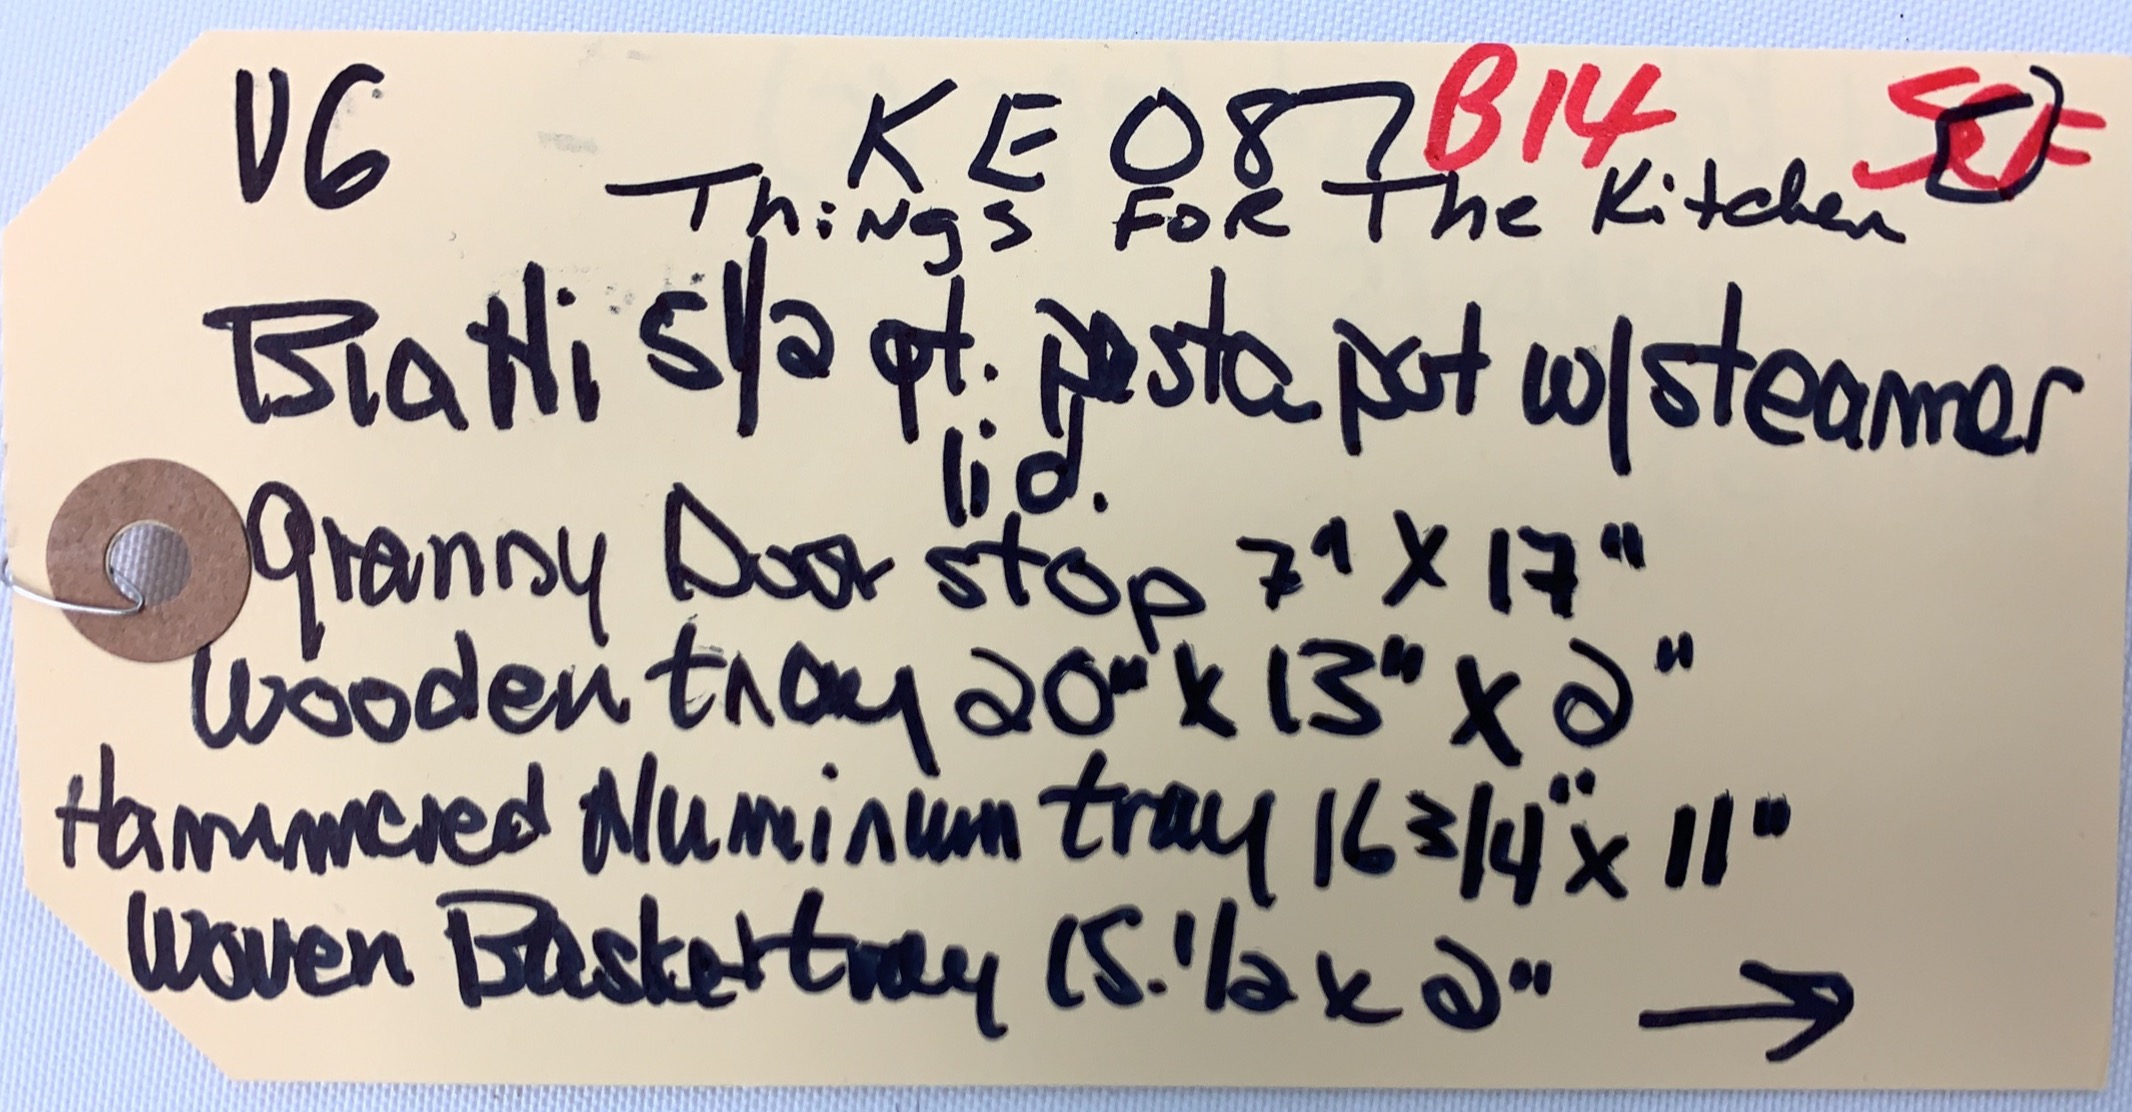 V6 KE087 B14
Things FOR The Kitchen
Bialtti 5 1/2 qt. pasta pot w/steammer
lid.
granny Door stop 7" X 17"
Wooden tray 20" x 13" x 2"
Hammered Aluminum tray 16 3/4" x 11"
Woven Basket tray 15.1/2 x 2" →